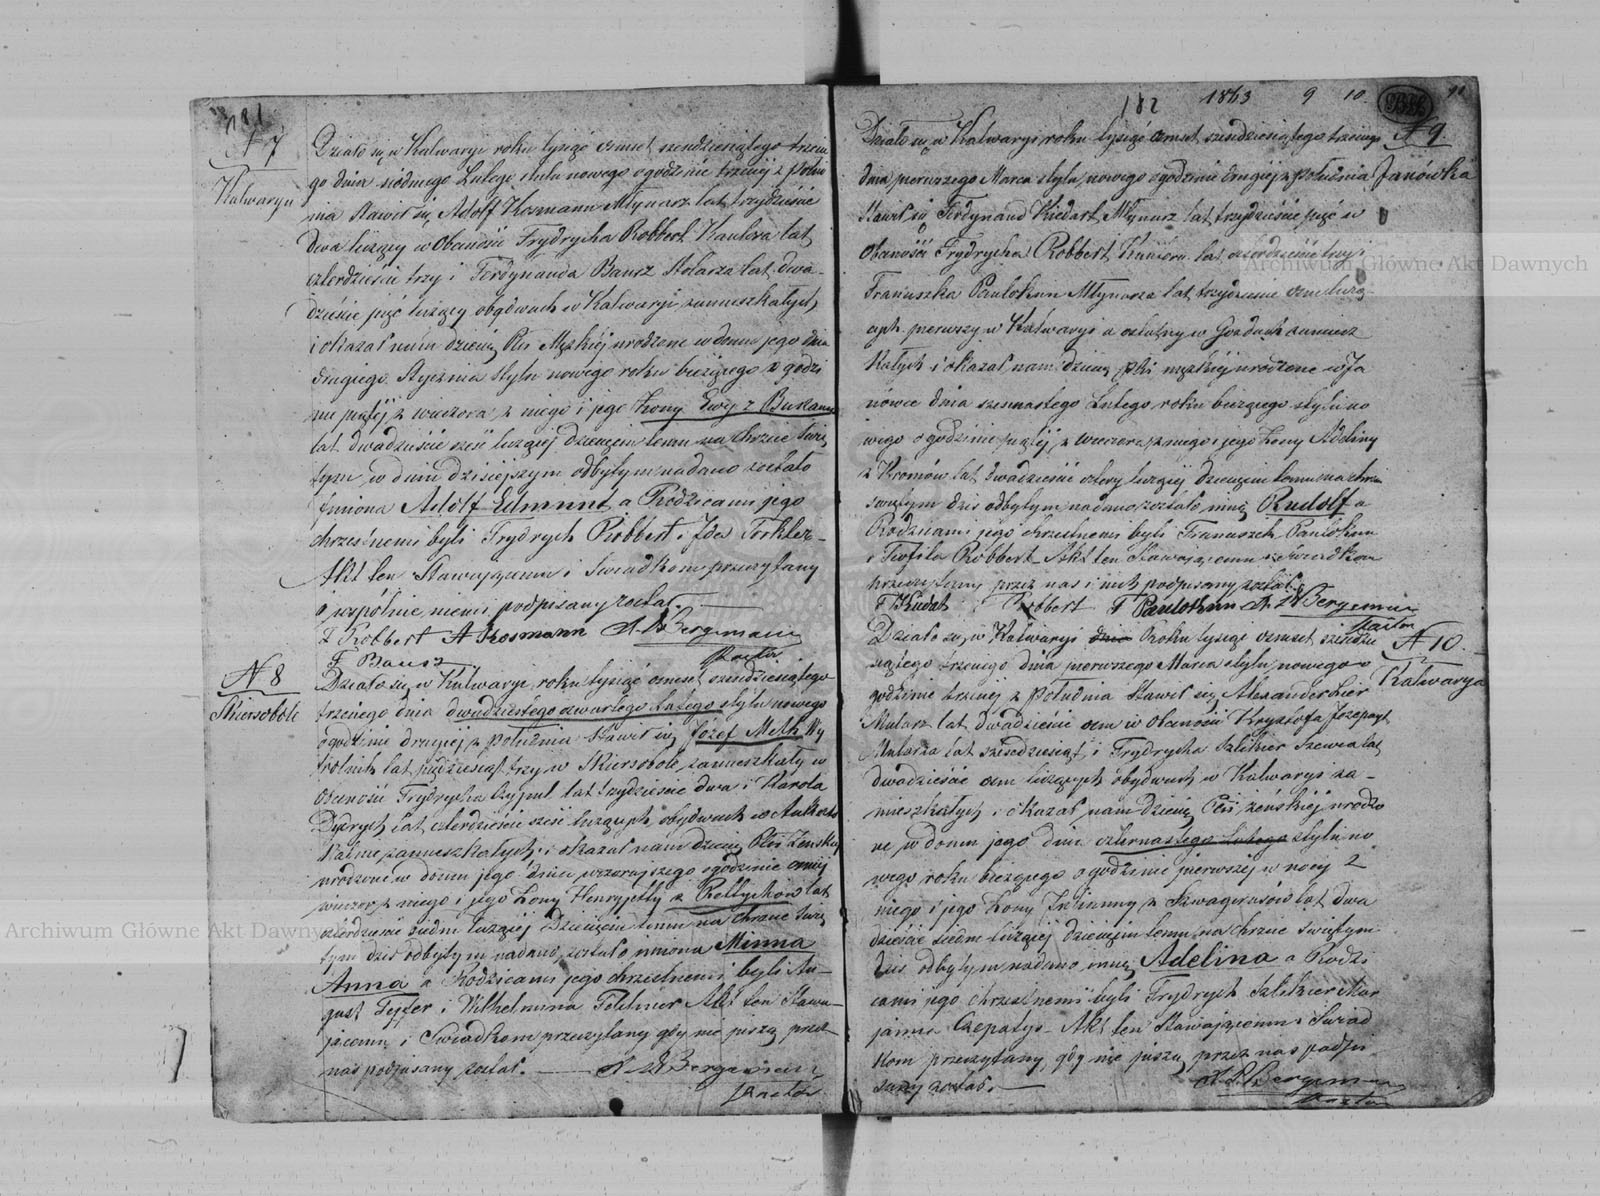 181
N 7
Kalwarya
Działo się w Kalwaryi roku tysiąc osmset szesdziesiątego trzecie
go dnia siódmego Lutego stylu nowego o godzinie trzeciej z połud
nia stawił się Adolf Kosmann Młynarz lat trzydzieście
dwa liczący w Obecności Frydrycha Robbert Kantora lat
czterdzieście trzy i Ferdynanda Bausz Stolarza lat dwa-
dzieście pięć liczący obydwuch w Kalwaryi zamieszkałych
i okazał nam dziecię Płci Męzkiej urodzone w domu jego dnia
drugiego Stycznia stylu nowego roku bieżącego o godzi
nie piątej z wieczora z niego i jego Żony Ewy z
lat dwadzieście sześ liczącej Dziecięciu temu na chrzcie świę
tym w dniu dzisiejszym odbytym nadano zostało
Imiona Adolf Edmund a Rodzicami jego
chrzestnemi byli Frydrych Robbert i Ida
Akt ten Stawającemu i Swiadkom przeczytany
i wspólnie niemi podpisany został.
Robbert A Kosmann Bergemann
F Bausz Pastor
N 8
Skiersobole
Działo się w Kalwaryi roku tysiąc osmset szesdziesiątego
trzeciego dnia dwudziestego czwartego Lutego stylu nowego
o godzinie drugiej z południa stawił się Józef
rolnik lat pięcdziesiąt trzy w Skiersobole zamieszkały w
Obecności Frydrycha lat trzydzieście dwa i Karola
Dydrych lat czterdzieście sześć liczących obydwuch w
zamieszkałych i okazał nam dziecię Płci Żenskiej
urodzone w domu jego dnia wczorajszego o godzinie osmej
wieczor z niego i jego Żony Henryjetty z lat
czterdzieście siedm liczącej Dziecięciu temu na chrzcie świę
tym dziś odbytym nadano zostało imiona Minna
Anna a Rodzicami jego chrzestnemi byli Au-
gust i Wilhelmina Akt ten Stawa-
jącemu i Swiadkom przeczytany gdy nie piszą przez
nas podpisany został. Bergemann
Pastor
182 1863 9 10
N 9.
Janówka
Działo się w Kalwaryi roku tysiąc osmset szesdziesiątego trzeciego
dnia pierwszego Marca stylu nowego o godzinie drugiej z południa
Stawił się Ferdynand Młynarz lat trzydzieście pięć w
Obecności Frydrycha Robbert Kantora lat czterdzieście trzy i
Franciszka Młynarza lat trzydzieście osm liczą
cych pierwszy w Kalwaryi a ostatny w zamiesz
kałych i okazał nam dziecię płci męzkiej urodzone w Ja
nowce dnia szesnastego Lutego roku bieżącego stylu no
wego o godzinie piątej z wieczora z niego i jego Żony Adeliny
z Kromów lat dwadzieście cztery liczącej Dziecięciu temu na chrzcie
świętym dziś odbytym nadano zostało imię Rudolf a
Rodzicami jego chrzestnemi byli Franciszek
i Teofila Robbert Akt ten Stawającemu i Swiadkom
przeczytany przez nas i nich podpisany został.
Robbert F Bergemann
Pastor
N 10.
Kalwarya
Działo się w Kalwaryi Roku tysiąc osmset szesdzie
siątego trzeciego dnia pierwszego Marca stylu nowego o
godzinie trzeciej z południa Stawił się Alexander
Mularz lat dwadzieście osm w Obecności Krysztofa
Mularza lat szescdziesiąt i Frydrycha Szewca lat
dwadzieście osm liczących obydwuch w Kalwaryi za-
mieszkałych i okazał nam dziecię Płci żeńskiej urodzo
ne w domu jego dnia czternastego Lutego stylu no
wego roku bieżącego o godzinie pierwszej w nocy z
niego i jego Żony z lat dwa
dzieście siedm liczącej Dziecięciu temu na chrzcie świętym
dziś odbytym nadano imię Adelina a Rodzi
cami jego chrzestnemi byli Frydrych Mar
janna Akt ten Stawającemu i Swiad
kom przeczytany, gdy nie piszą przez nas podpi
sany został. Bergemann
Pastor
Archiwum Główne Akt Dawnych
Archiwum Główne Akt Dawnych